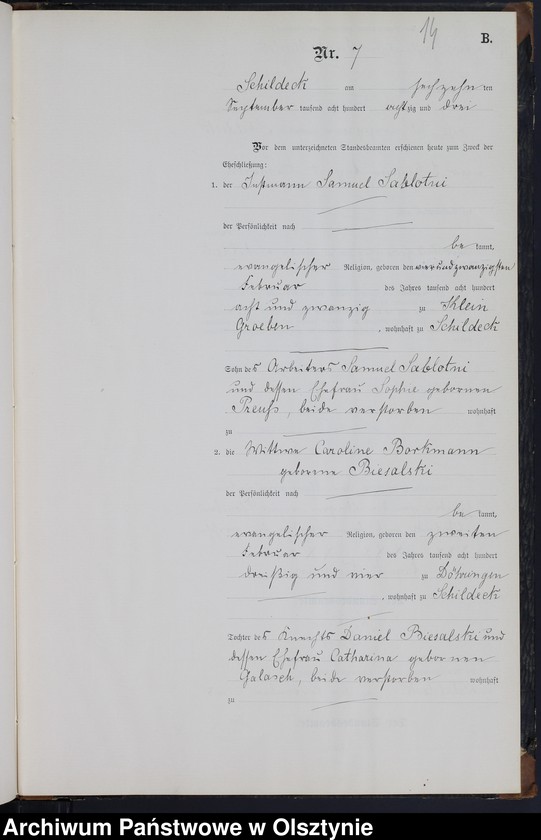 14
B.
Nr. 7
Schildeck am sechzehnten
September tausend acht hundert achtzig und drei
Vor dem unterzeichneten Standesbeamten erschienen heute zum Zweck der
Eheschließung:
1. der Instmann Samuel Sablotni
der Persönlichkeit nach
be kannt,
evangelischer Religion, geboren den vierundzwanzigsten
Februar des Jahres tausend acht hundert
acht und zwanzig zu Klein
Groeben, wohnhaft zu Schildeck
Sohn des Arbeiters Samuel Sablotni
und dessen Ehefrau Sophie gebornen
Preuß, beide verstorben wohnhaft
zu
2. die Wittwe Caroline Borkmann
geborene Biesalski
der Persönlichkeit nach
be kannt,
evangelischer Religion, geboren den zweiten
Februar des Jahres tausend acht hundert
dreißig und vier zu Döhringen
, wohnhaft zu Schildeck
Tochter des Knechts Daniel Biesalski und
dessen Ehefrau Catharina gebornen
Galasch, beide verstorben wohnhaft
zu
Archiwum Państwowe w Olsztynie